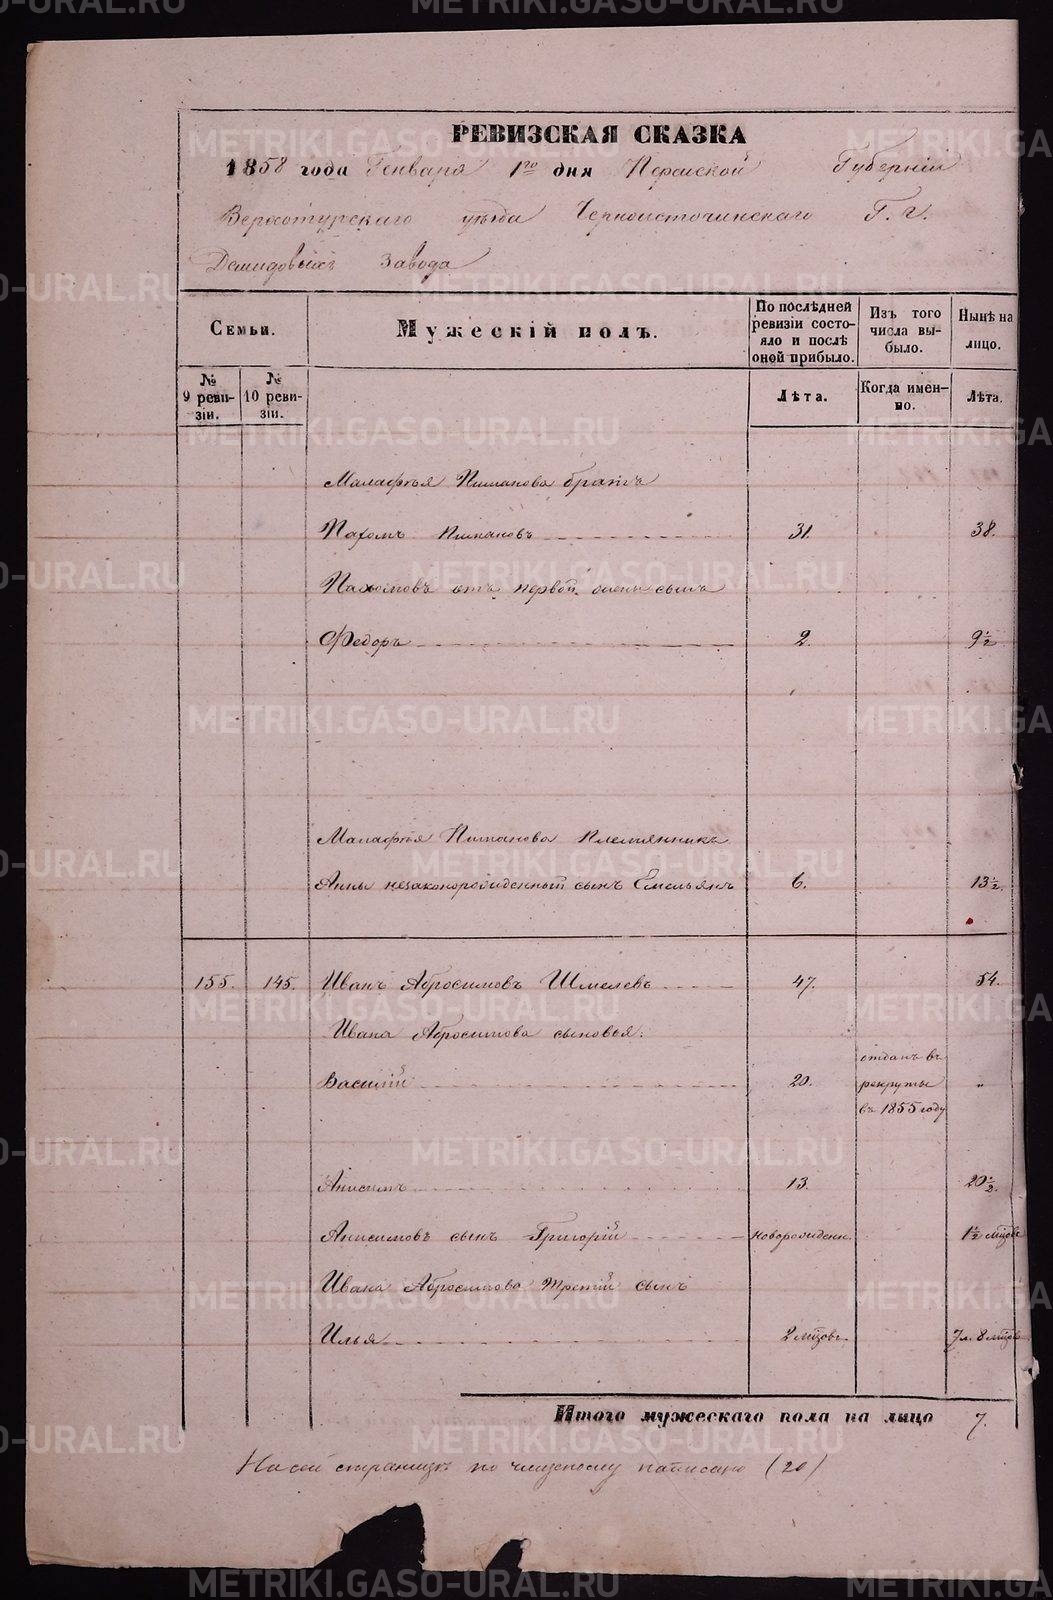 РЕВИЗСКАЯ СКАЗКА
1858 года Генваря 1го дня Пермской Губерніи
Верхотурскаго уѣзда Черноисточинскаго Г. г.
Демидовыхъ Завода
Семьи.
Мужескій полъ.
По послѣдней ревизіи состояло и послѣ оной прибыло.
Изъ того числа выбыло.
Нынѣ на лицо.
№ 9 ревизіи.
№ 10 ревизіи.
Лѣта.
Когда именно.
Лѣта.
Малафѣя братъ
Пахомъ 31. 38.
Пахомовъ отъ первой жены сынъ
Федоръ 2. 9½
Малафѣя племянникъ
Анны незаконорожденный сынъ Емельянъ 6. 13½.
155. 145. Иванъ Абросимовъ Шмелевъ 47. 54.
Ивана Абросимова сыновья:
Василій 20. отданъ въ рекруты въ 1855 году "
Анисимъ 13. 20½.
Анисимовъ сынъ Григорій новорожденн. 1½ мѣцовъ
Ивана Абросимова третій сынъ
Илья 2 мѣцовъ. 7 л. 8 мѣцовъ
Итого мужескаго пола на лицо 7.
На сей страницѣ по написано (20)
METRIKI.GASO-URAL.RU